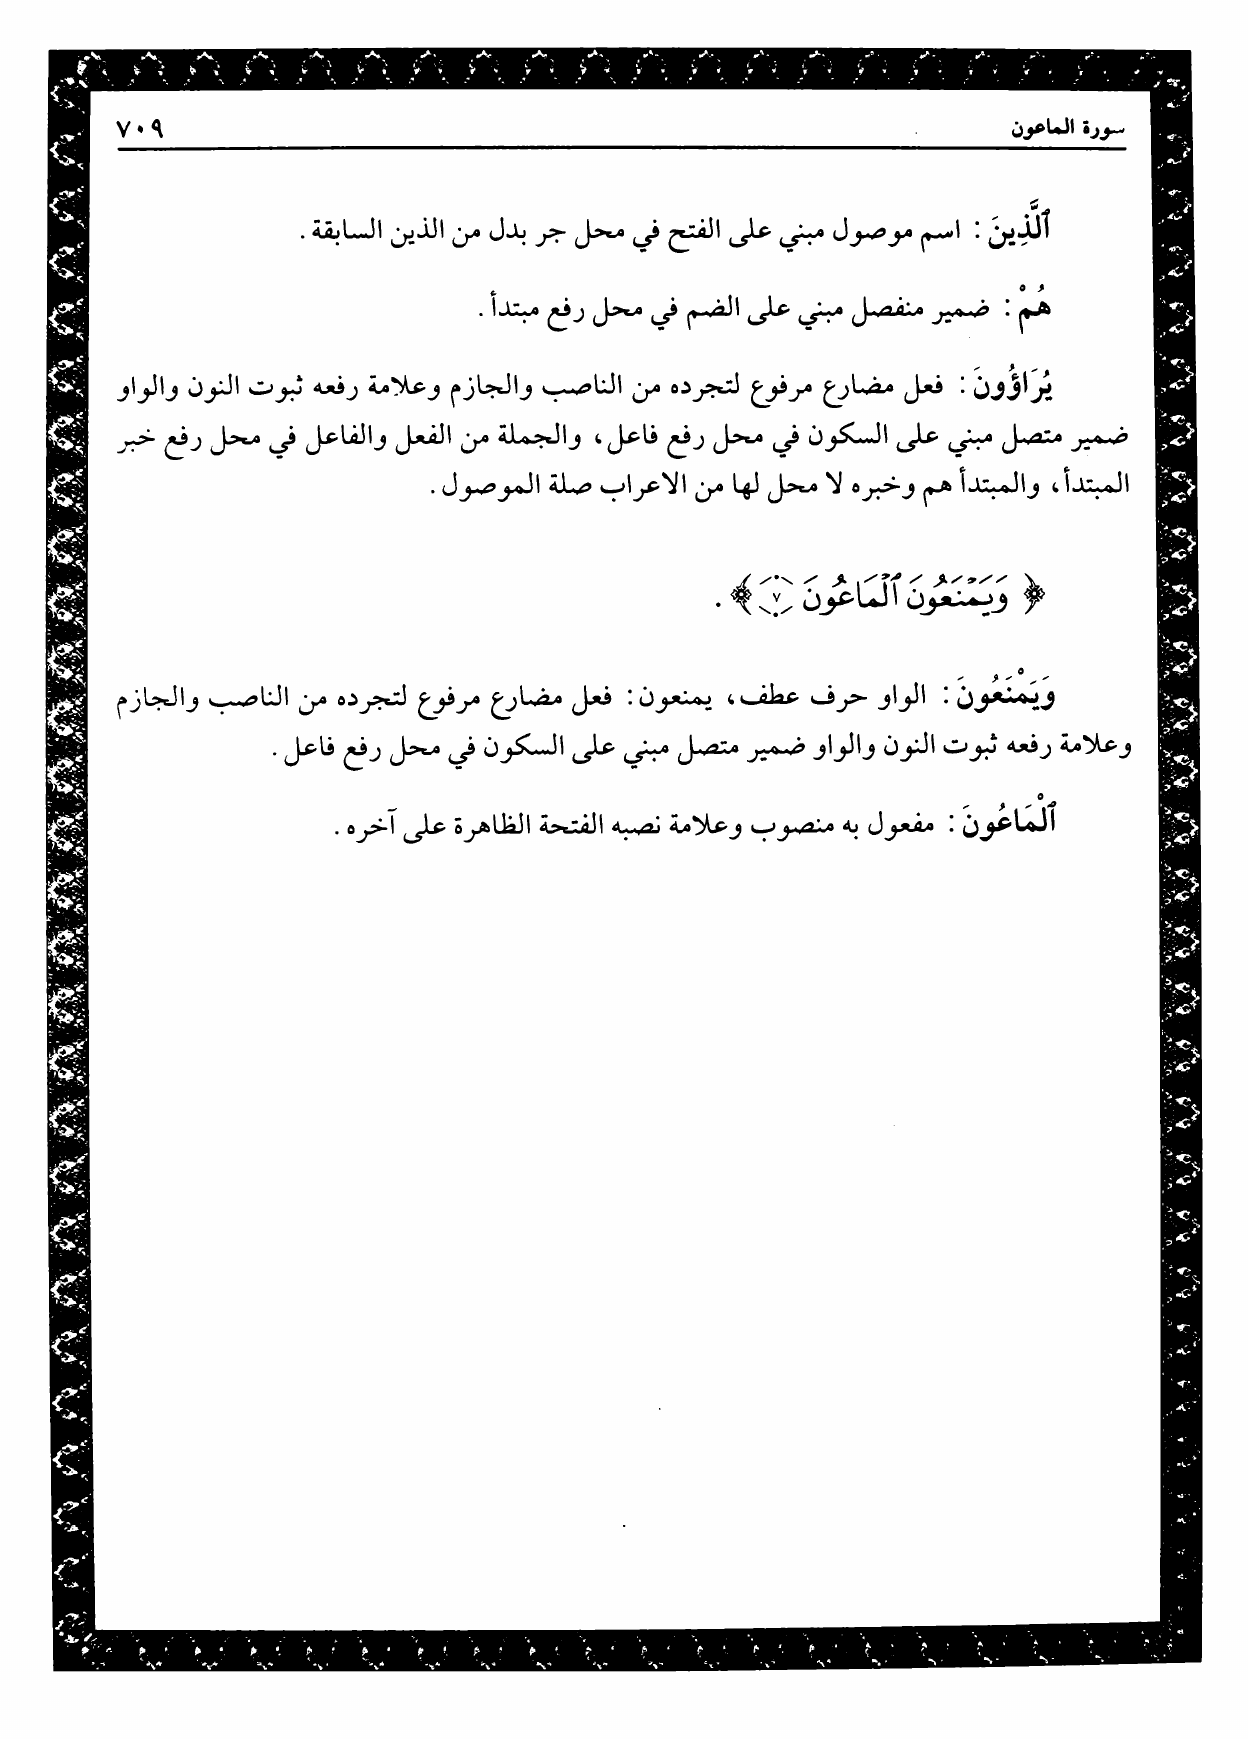 سورة الماعون
٧٠٩
ٱلَّذِينَ : اسم موصول مبني على الفتح في محل جر بدل من الذين السابقة .
هُمْ : ضمير منفصل مبني على الضم في محل رفع مبتدأ .
يُرَاؤُونَ : فعل مضارع مرفوع لتجرده من الناصب والجازم وعلامة رفعه ثبوت النون والواو
ضمير متصل مبني على السكون في محل رفع فاعل ، والجملة من الفعل والفاعل في محل رفع خبر
المبتدأ ، والمبتدأ هم وخبره لا محل لها من الاعراب صلة الموصول .
﴿ وَيَمْنَعُونَ ٱلْمَاعُونَ ٧ ﴾ .
وَيَمْنَعُونَ : الواو حرف عطف ، يمنعون : فعل مضارع مرفوع لتجرده من الناصب والجازم
وعلامة رفعه ثبوت النون والواو ضمير متصل مبني على السكون في محل رفع فاعل .
ٱلْمَاعُونَ : مفعول به منصوب وعلامة نصبه الفتحة الظاهرة على آخره .